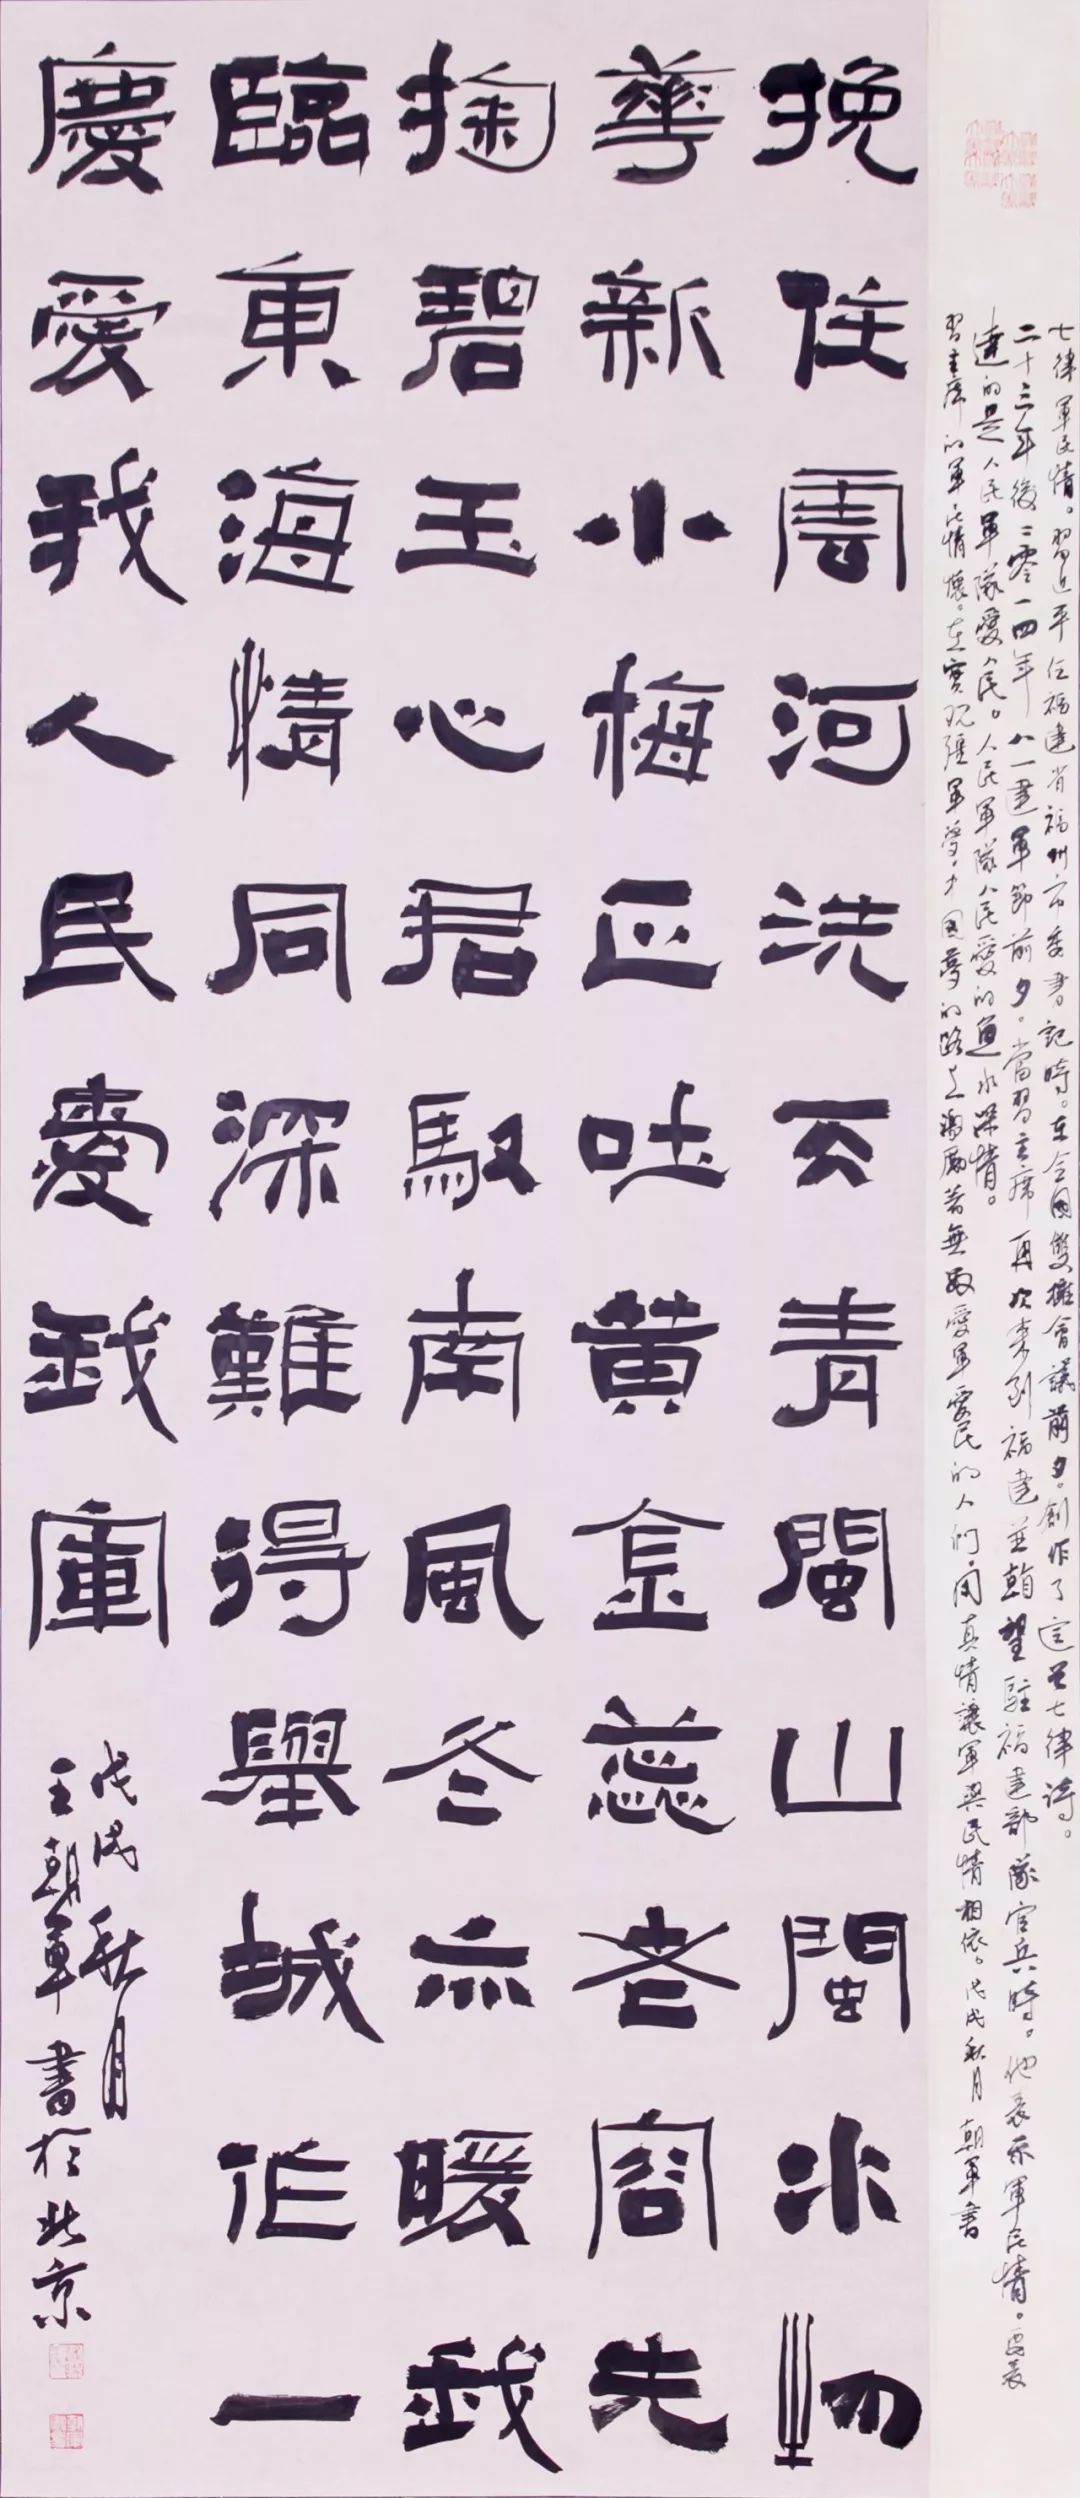 七律軍民情。習近平任福建省福州市委書記時。在全國雙擁會議前夕。創作了這首七律詩。
二十三年後二零一四年八一建軍節前夕。當習主席再次來到福建並望駐福建部隊官兵時。他表示軍民情。要表
達的是人民軍隊愛人民。人民軍隊人民愛的魚水深情。
習主席的軍民情懷。在實現強軍夢中國夢的路上激勵著無數愛軍愛民的人們用真情讓軍與民情相依。戊戌秋月朝軍書
挽住雲河洗天青閩山閩水物
華新小梅正吐黃金蕊老容先
掬碧玉心君馭南風冬亦暖我
臨東海情同深難得舉城作一
慶愛我人民愛我軍
戊戌秋月
王朝軍書於北京